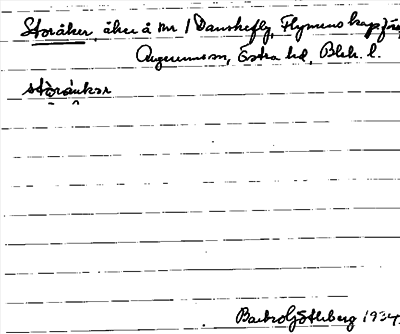 Storåker, åker å nr 1 Danskefly, Flymens kapsförs.
Augerums sn, Östra hd, Blek. l.
stòrá̀ukər
Bertil Göthberg 1934